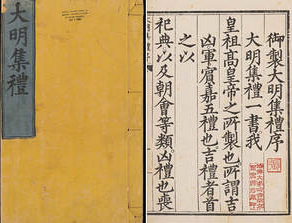 大明集禮
御製大明集禮序
大明集禮一書我
皇祖高皇帝之所製也所謂吉
凶軍賓嘉五禮也吉禮者首
之以
祀典以及朝會等類凶禮也喪